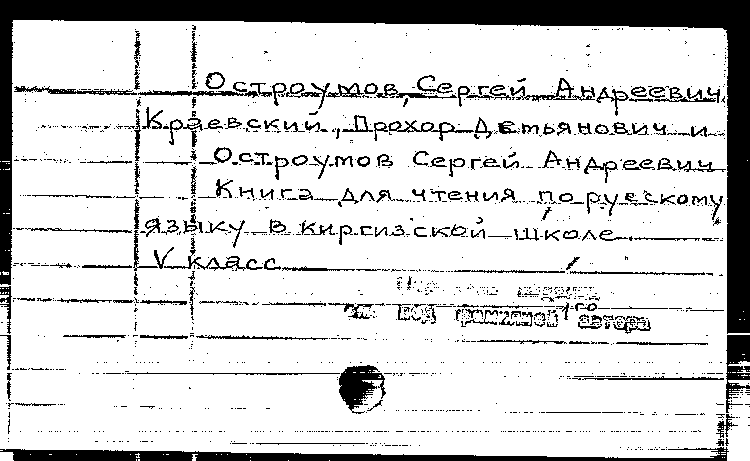 Остроумов, Сергей Андреевич
Краевский, Прохор Демьянович и
Остроумов Сергей Андреевич
Книга для чтения по русскому
языку в киргизской школе.
V класс
см. под фамилией 1го автора